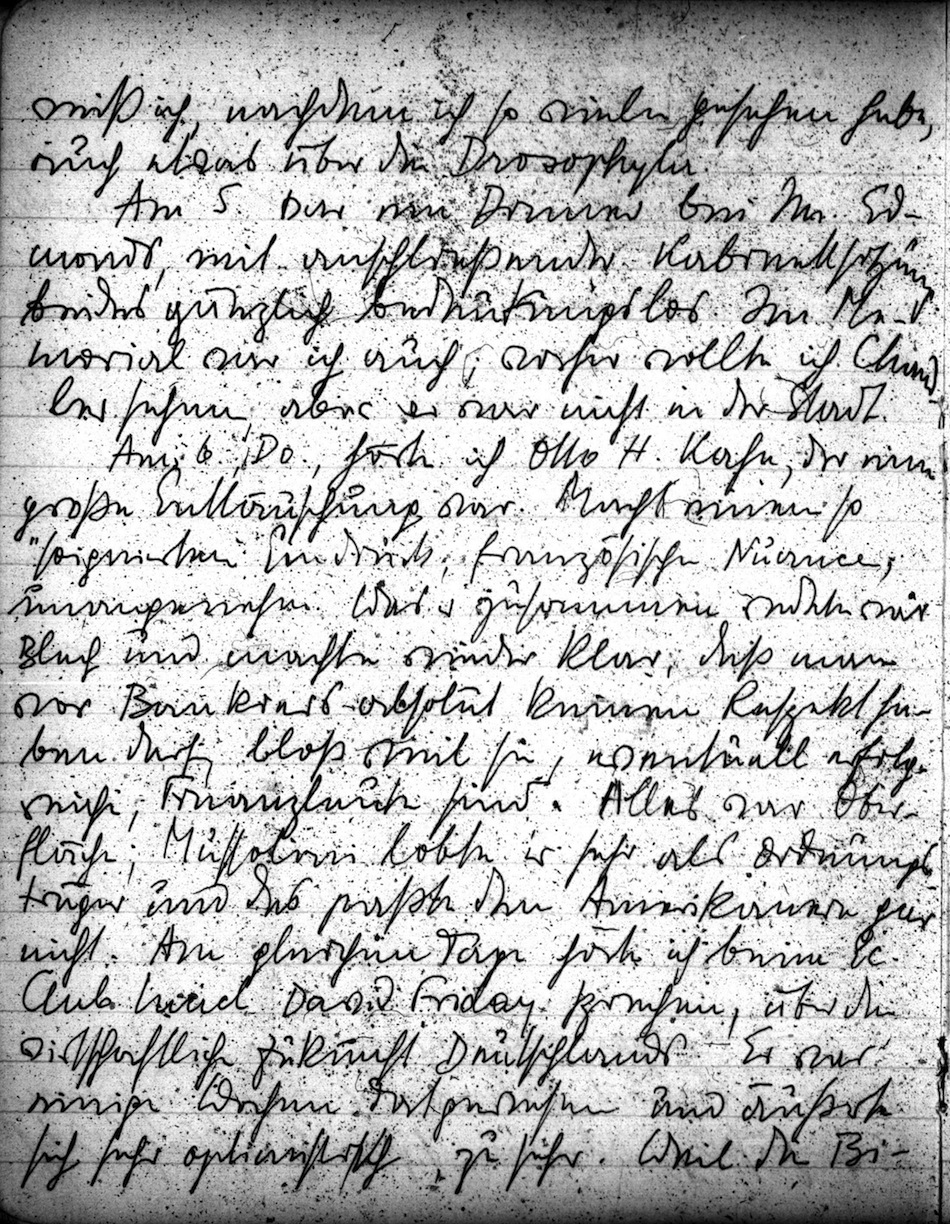 weiß ich, nachdem ich so viele gesehen habe,
auch etwas über die Drosophyla.
Am 5. war ein Dinner bei Mr. Ed-
monds, mit anschließender Kabinettsitzung
beides gänzlich bedeutungslos. Im Me-
morial war ich auch; vorher wollte ich Chand-
ler sehen, aber er war nicht in der Stadt.
Am 6., Do., hörte ich Otto H. Kahn, der eine
große Enttäuschung war. Macht einen so
"soignierten Eindruck, französische Nuance,
unangenehm. Was er zusammen redete war
Blech und machte wieder klar, daß man
vor Bankiers absolut keinen Respekt ha-
ben darf, bloß weil sie, eventuell erfolg-
reiche, Finanzleute sind. Alles war Ober-
fläche; Mussolini lobte er sehr als Ordnungs
träger und das paßte den Amerikanern gar
nicht. Am gleichen Tage hörte ich beim Ec.
Club David Friday sprechen, über die
wirtschaftliche Zukunft Deutschlands. Er war
einige Wochen dort gewesen und äußerte
sich sehr optimistisch, zu sehr. Weil die Bi-